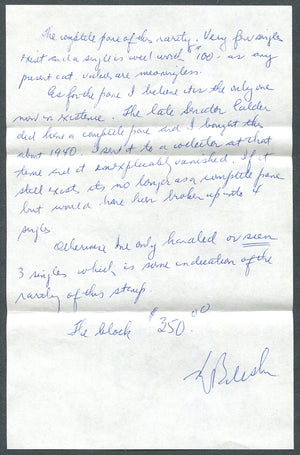 The complete pane of this rarity. Very few singles
exist and a single is well worth $100.- as any
present cat. values are meaningless.
As for the pane I believe its the only one
now in existence. The late Senator Calder
did have a complete pane and I bought this
about 1940. I sent it to a collector at that
time and it inexplicably vanished. If it
still exist its no longer as a complete pane
but would have been broken up into
singles.
Otherwise I've only handled or seen
3 singles which is some indication of the
rarity of this stamp.
The block $350.00
K Bileski